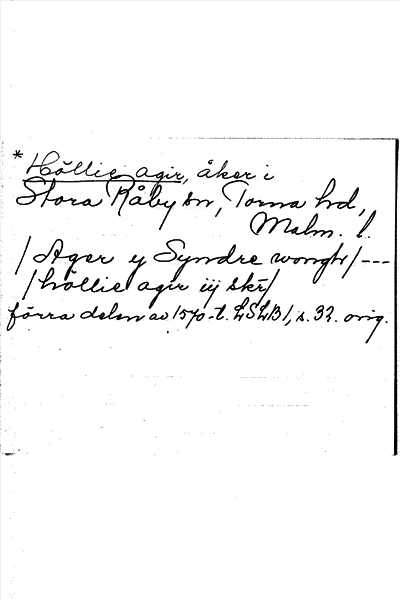 * Höllie agir, åker i
Stora Råby sn, Torna hd,
Malm. l.
/ Ager y Syndre wongh / ---
/ höllie agir iij skr /
förra delen av 1570-t. LSLB1, s. 32. orig.